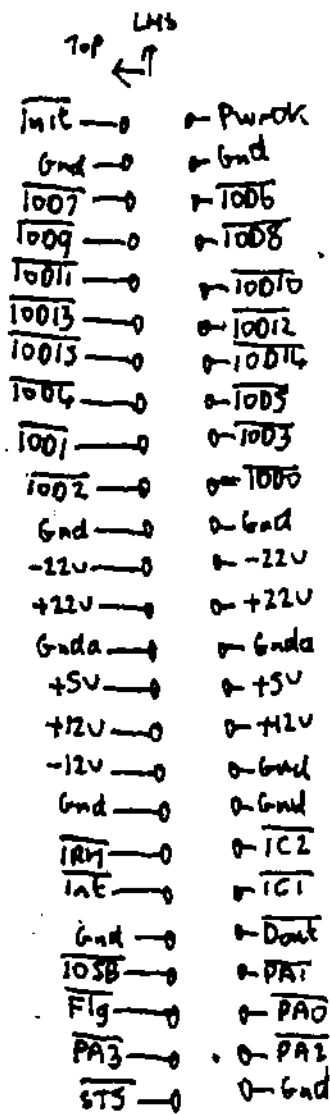 LHS
Top
Init PwrOK
Gnd Gnd
IOD7 IOD6
IOD9 IOD8
IOD11 IOD10
IOD13 IOD12
IOD15 IOD14
IOD4 IOD5
IOD1 IOD3
IOD2 IOD0
Gnd Gnd
-22v -22v
+22v +22v
Gnda Gnda
+5v +5v
+12v +12v
-12v Gnd
Gnd Gnd
IRH IC2
Int IC1
Gnd Dout
IOSB PA1
Flg PA0
PA3 PA2
STS Gnd